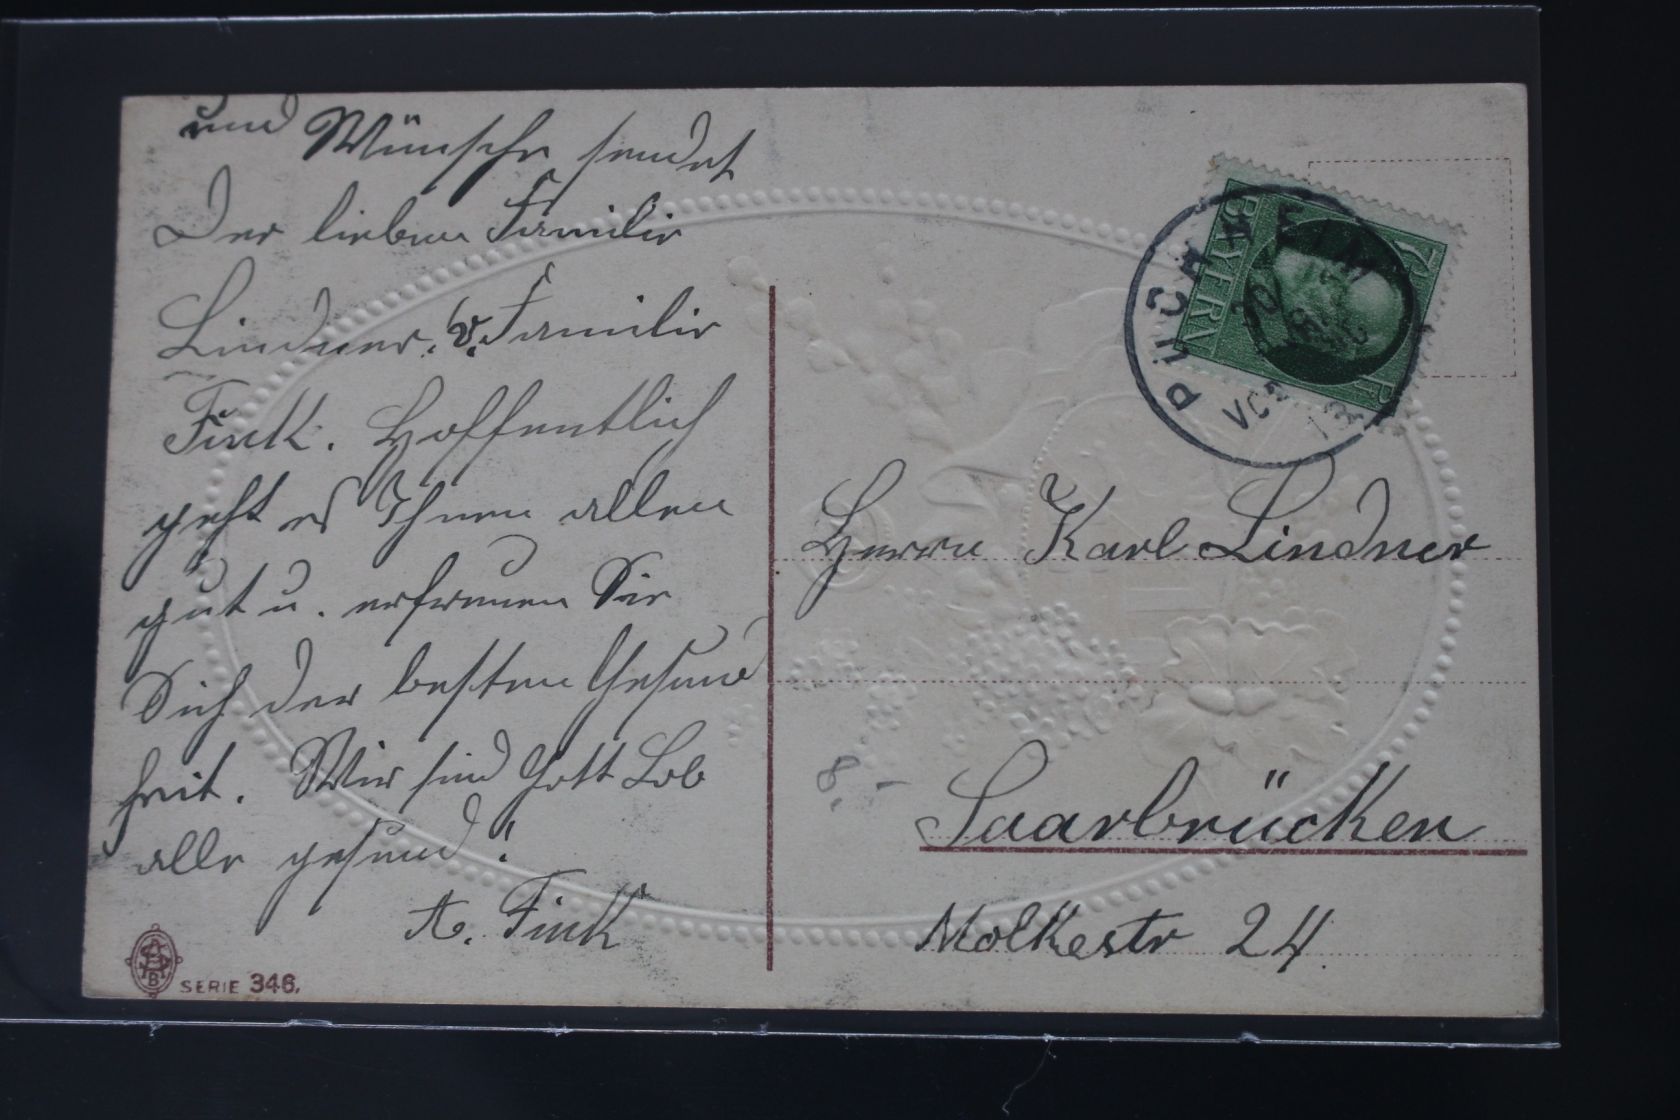 und Wünsche sendet
Der lieben Familie
Lindner. v. Familie
Fink. Hoffentlich
geht es Ihnen allen
gut u. erfreuen Sie
Sich der besten Gesund
heit. Wir sind Gott Lob
alle gesund!
A. Fink
SERIE 346.
BAYERN
PUCHHEIM
Herrn Karl Lindner
8.-
Saarbrücken
Molkestr 24.